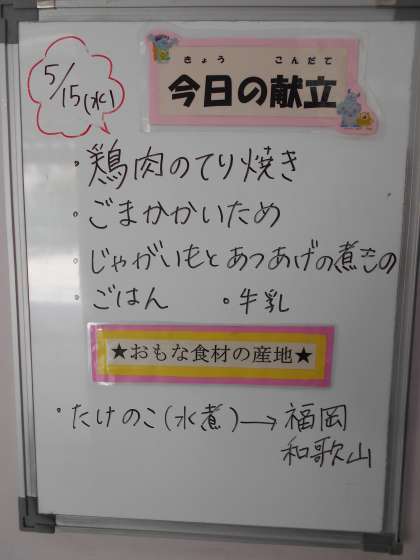 5/15(水)
きょう こんだて
今日の献立
・鶏肉のてり焼き
・ごまかかいため
・じゃがいもとあつあげの煮もの
・ごはん ・牛乳
★おもな食材の産地★
・たけのこ(水煮)→福岡
和歌山